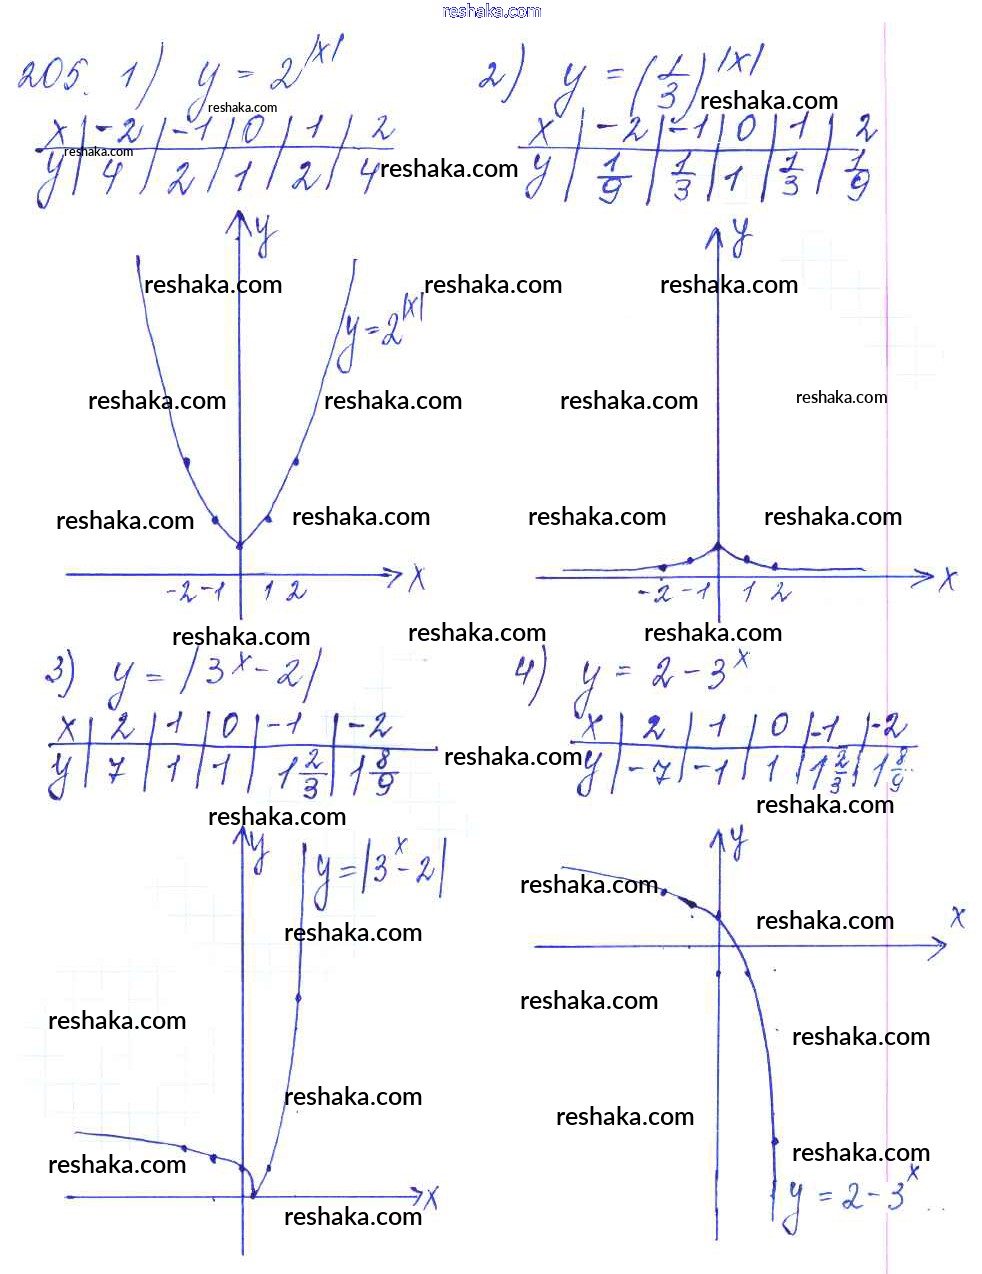 reshaka.com
205. 1) y = 2^|x|
reshaka.com
x | -2 | -1 | 0 | 1 | 2
reshaka.com
y | 4 | 2 | 1 | 2 | 4
reshaka.com
2) y = (1/3)^|x|
reshaka.com
x | -2 | -1 | 0 | 1 | 2
y | 1/9 | 1/3 | 1 | 1/3 | 1/9
y
y
reshaka.com reshaka.com reshaka.com
y = 2^|x|
reshaka.com reshaka.com reshaka.com reshaka.com
reshaka.com reshaka.com reshaka.com reshaka.com
x
-2 -1 1 2
x
-2 -1 1 2
reshaka.com reshaka.com reshaka.com
3) y = |3^x - 2|
x | 2 | 1 | 0 | -1 | -2
y | 7 | 1 | 1 | 1 2/3 | 1 8/9
reshaka.com
4) y = 2 - 3^x
x | 2 | 1 | 0 | -1 | -2
y | -7 | -1 | 1 | 1 2/3 | 1 8/9
reshaka.com reshaka.com
y
y = |3^x - 2|
y
reshaka.com
reshaka.com reshaka.com
x
reshaka.com reshaka.com
reshaka.com
reshaka.com reshaka.com
reshaka.com reshaka.com
x
y = 2 - 3^x
reshaka.com